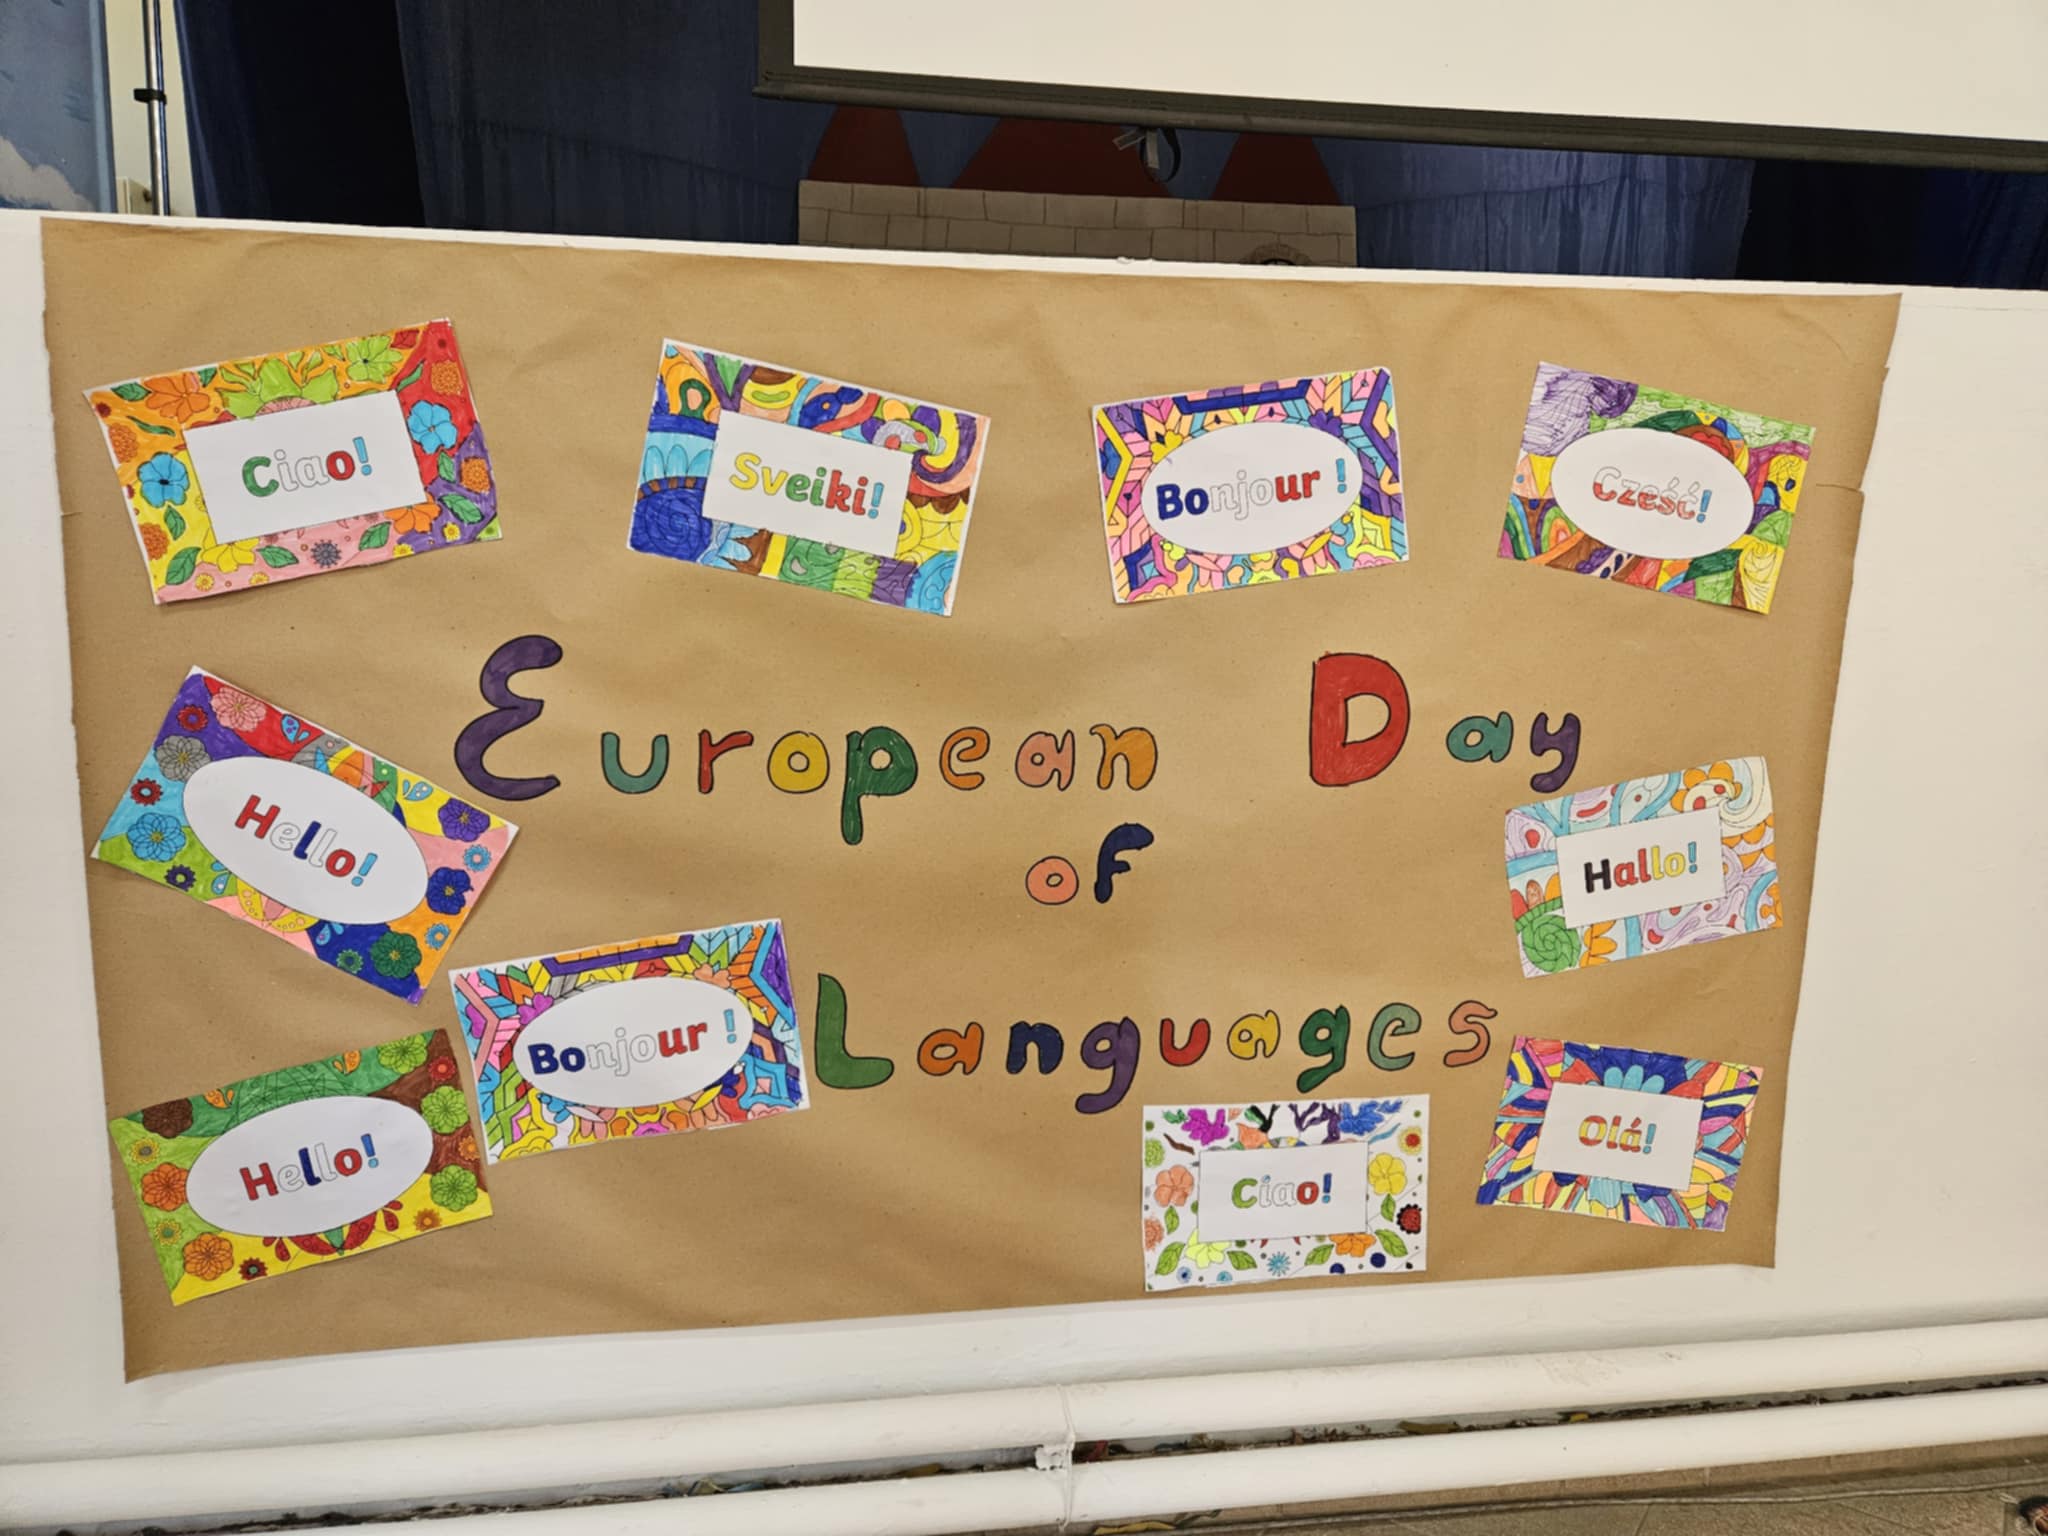 Ciao!
Sveiki!
Bonjour !
Cześć!
European Day
of
Languages
Hello!
Hallo!
Bonjour !
Hello!
Ciao!
Olá!